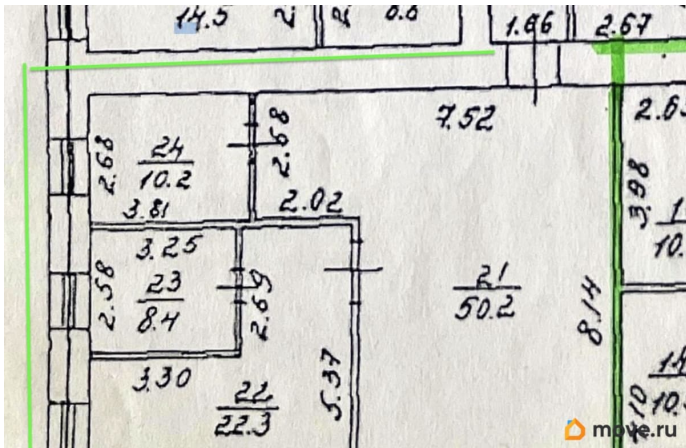 14.5
1.66
2.67
7.52
2.68
24
10.2
2.68
3.81
2.02
3.98
3.25
23
8.4
2.58
2.69
21
50.2
8.14
3.30
22
22.3
5.37
move.ru